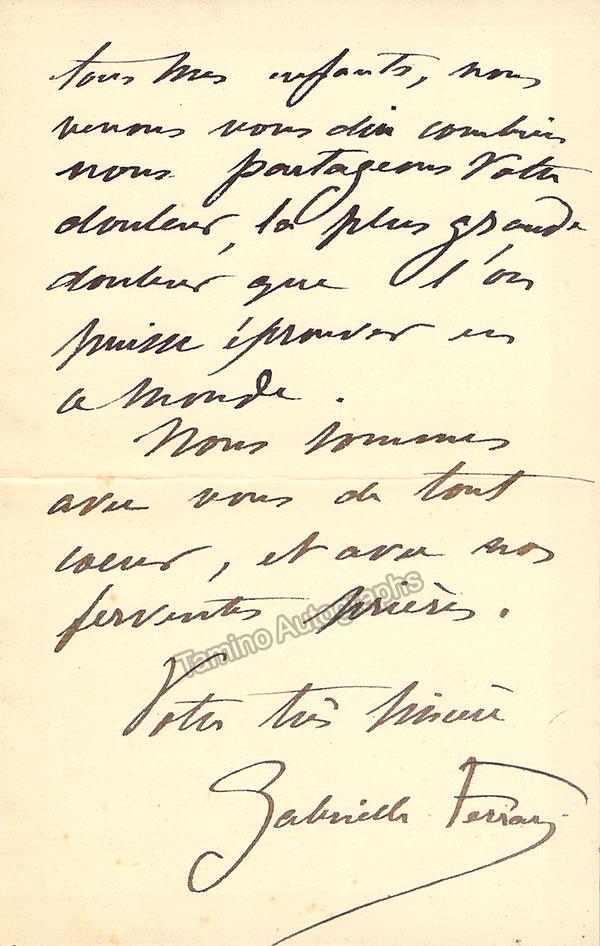 tous mes enfants, nous
venons vous dire combien
nous partageons Votre
douleur, la plus grande
douleur que l'on
puisse éprouver en
ce monde.
Nous sommes
avec vous de tout
coeur, et avec nos
ferventes prières.
Tamino Autographs
Votre très sincère
Gabrielle Ferrari